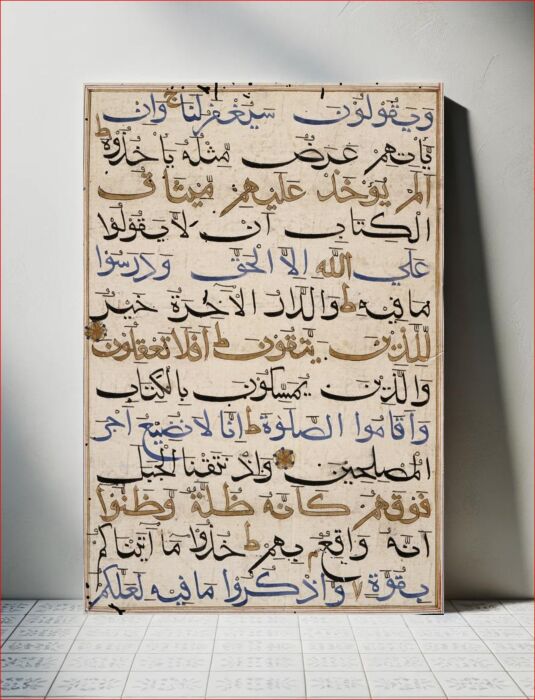 وَيَقُولُونَ سَيُغْفَرُ لَنَا ج وَاِنْ
يَأْتِهِمْ عَرَضٌ مِثْلُهُ يَأْخُذُوهُ ط
اَلَمْ يُؤْخَذْ عَلَيْهِمْ مِيثَاقُ
الْكِتَابِ اَنْ لَا يَقُولُوا
عَلَي اللّٰهِ اِلَّا الْحَقَّ وَدَرَسُوا
مَا فِيهِ ط وَالدَّارُ الْاٰخِرَةُ خَيْرٌ
لِلَّذِينَ يَتَّقُونَ ط اَفَلَا تَعْقِلُونَ
وَالَّذِينَ يُمَسِّكُونَ بِالْكِتَابِ
وَاَقَامُوا الصَّلٰوةَ ط اِنَّا لَا نُضِيعُ اَجْرَ
الْمُصْلِحِينَ وَاِذْ نَتَقْنَا الْجَبَلَ
فَوْقَهُمْ كَاَنَّهُ ظُلَّةٌ وَظَنُّوا
اَنَّهُ وَاقِعٌ بِهِمْ ط خُذُوا مَا اٰتَيْنَاكُمْ
بِقُوَّةٍ وَاذْكُرُوا مَا فِيهِ لَعَلَّكُمْ